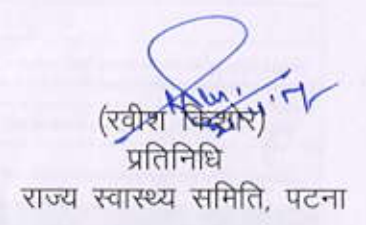 (रवीश किशोर)
प्रतिनिधि
राज्य स्वास्थ्य समिति, पटना